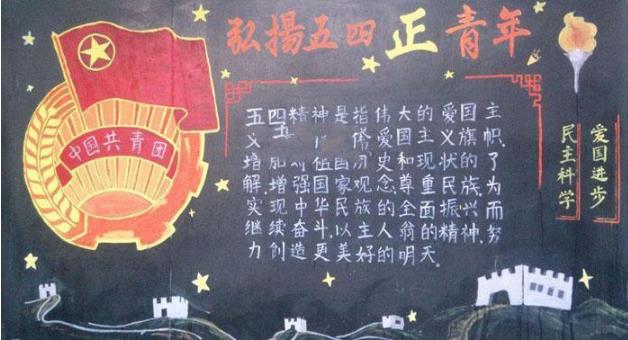 弘揚五四正青年
中国共青团
五四精神是指伟大的爱国主
义五 爱国主义旗帜.
增加 国 史和现状的了
解增强国家观念 尊重民族 为
实现中华民族的全面振兴而
继续奋斗.以主人翁的精神.努
力创造更美好的明天.
爱国进步
民主科学